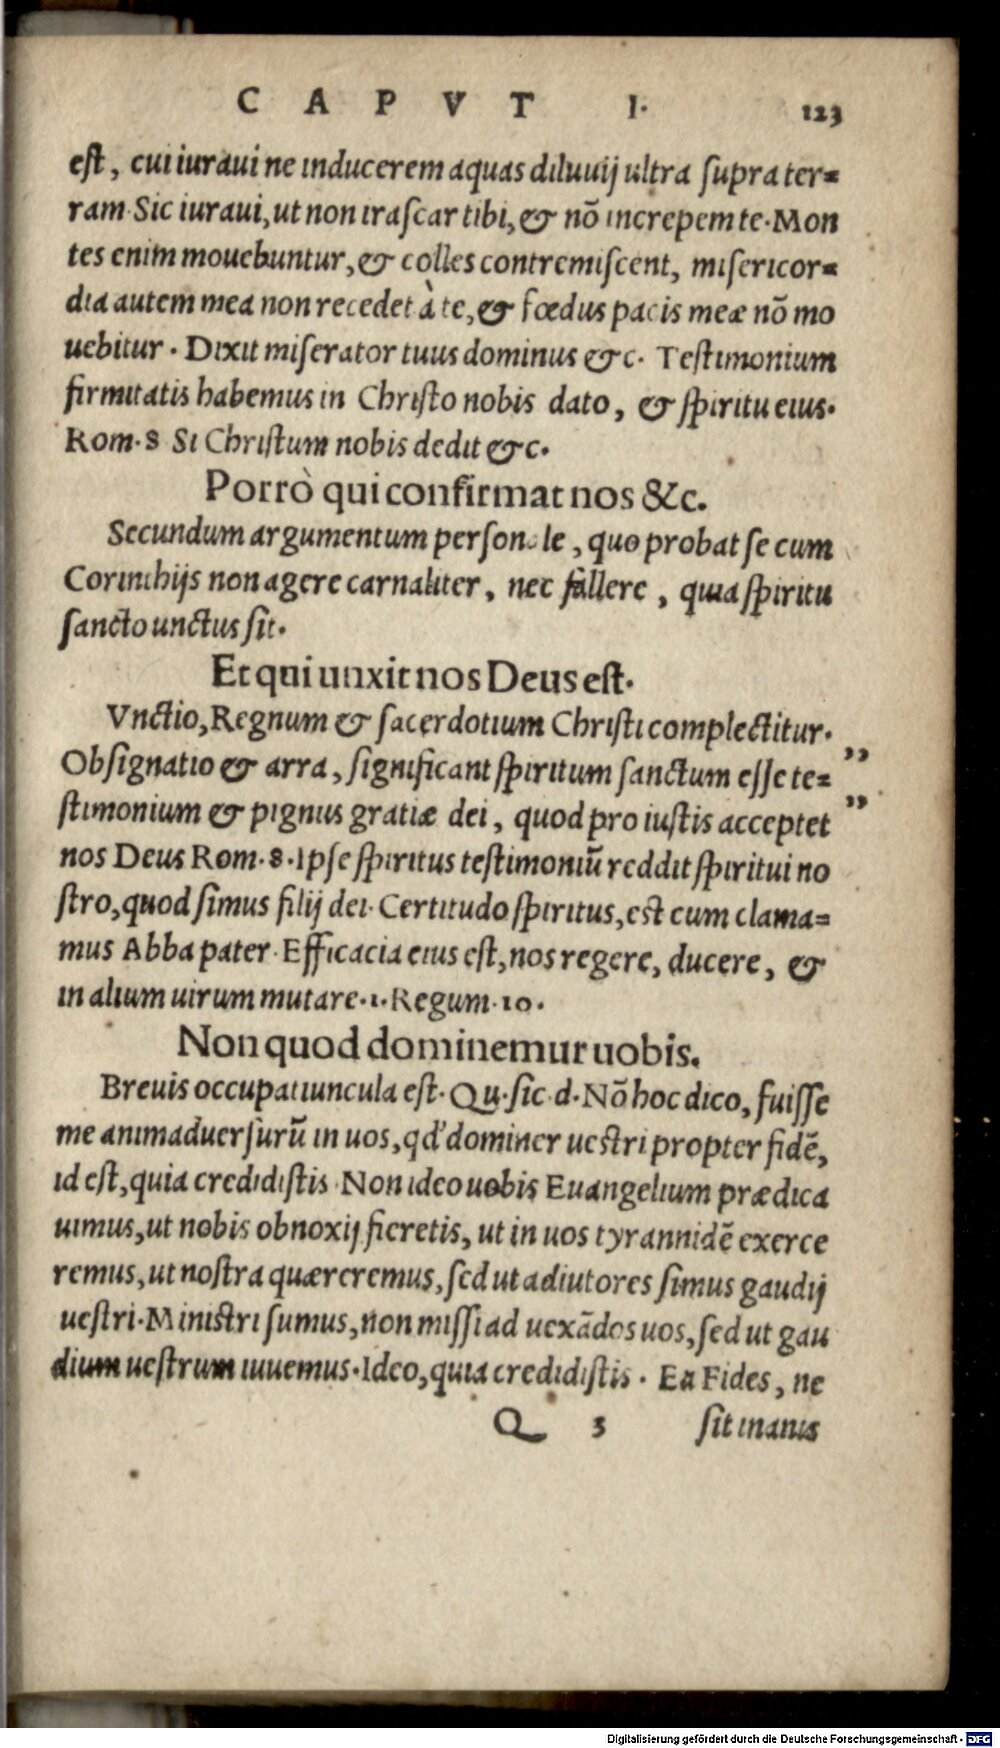 CAPVT I. 123
est, cui iuraui ne inducerem aquas diluuij ultra supra ter=
ram. Sic iuraui, ut non irascar tibi, & nõ increpem te. Mon
tes enim mouebuntur, & colles contremiscent, misericor=
dia autem mea non recedet à te, & fœdus pacis meæ nõ mo
uebitur. Dixit miserator tuus dominus &c. Testimonium
firmitatis habemus in Christo nobis dato, & spiritu eius.
Rom. 8 Si Christum nobis dedit &c.
Porrò qui confirmat nos &c.
Secundum argumentum personale, quo probat se cum
Corinthijs non agere carnaliter, nec fallere, quia spiritu
sancto unctus sit.
Et qui unxit nos Deus est.
Vnctio, Regnum & sacerdotium Christi complectitur.
Obsignatio & arra, significant spiritum sanctum esse te= ”
stimonium & pignus gratiæ dei, quod pro iustis acceptet ”
nos Deus Rom. 8. Ipse spiritus testimoniũ reddit spiritui no
stro, quod simus filij dei. Certitudo spiritus, est cum clama=
mus Abba pater. Efficacia eius est, nos regere, ducere, &
in alium uirum mutare. 1. Regum. 10.
Non quod dominemur uobis.
Breuis occupatiuncula est. Qu. sic d. Nõ hoc dico, fuisse
me animaduersurũ in uos, qd' dominer uestri propter fidẽ,
id est, quia credidistis. Non ideo uobis Euangelium prædica
uimus, ut nobis obnoxij fieretis, ut in uos tyrannidẽ exerce
remus, ut nostra quæreremus, sed ut adiutores simus gaudij
uestri. Ministri sumus, non missi ad uexãdos uos, sed ut gau
dium uestrum iuuemus. Ideo, quia credidistis. Ea Fides, ne
Q 3 sit inanis
Digitalisierung gefördert durch die Deutsche Forschungsgemeinschaft - DFG